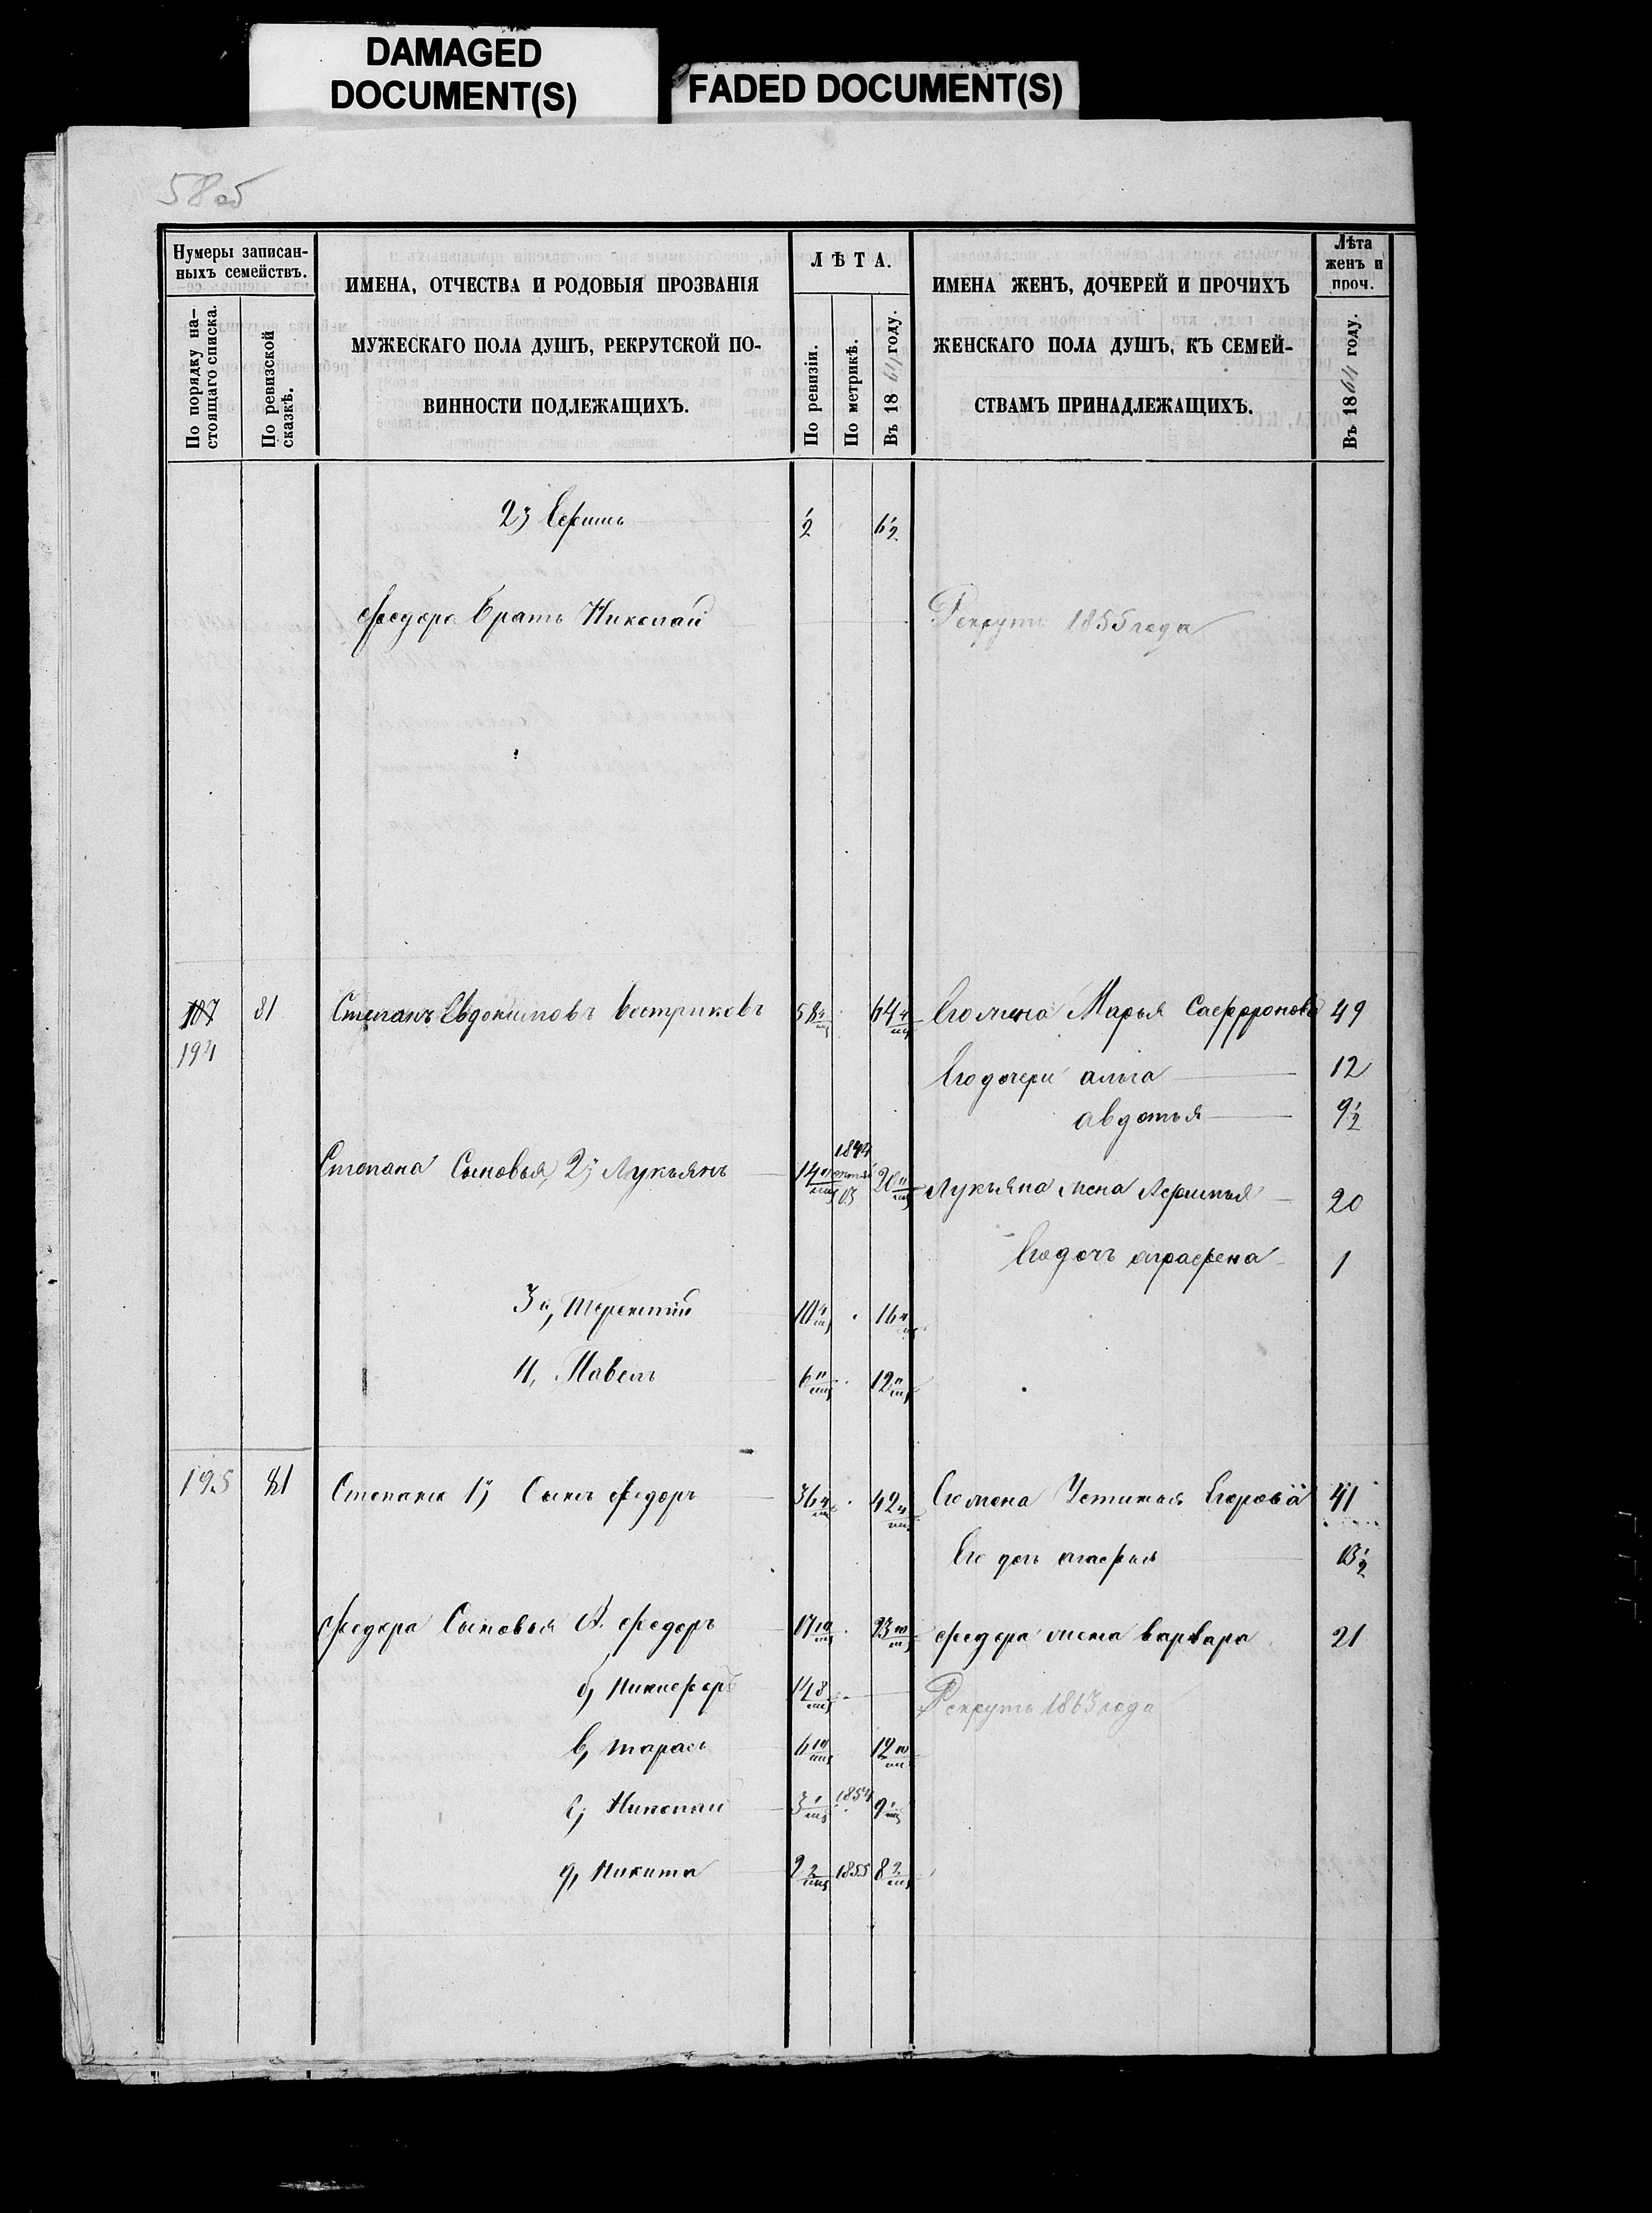 DAMAGED
DOCUMENT(S)
FADED DOCUMENT(S)
58 об
Нумеры записан-
ныхъ семействъ.
По порядку на-
стоящаго списка.
По ревизской
сказкѣ.
ИМЕНА, ОТЧЕСТВА И РОДОВЫЯ ПРОЗВАНІЯ
МУЖЕСКАГО ПОЛА ДУШЪ, РЕКРУТСКОЙ ПО-
ВИННОСТИ ПОДЛЕЖАЩИХЪ.
ЛѢТА.
По ревизіи.
По метрикѣ.
Въ 1864 году.
ИМЕНА ЖЕНЪ, ДОЧЕРЕЙ И ПРОЧИХЪ
ЖЕНСКАГО ПОЛА ДУШЪ, КЪ СЕМЕЙ-
СТВАМЪ ПРИНАДЛЕЖАЩИХЪ.
Лѣта
женъ и
проч.
Въ 1864 году.
2й Ефимъ ½ 6½
Федора братъ Николай Рекрутъ 1855 года
187 81 Степанъ Евдокимовъ Востриковъ 58 4/мц 64 4/мц Его жена Марья Сафронова 49
194
Его дочери 12
авдотья 9½
1844
Степана Сыновья, 2й Лукьянъ 14 20 Лукьяна жена 20
Его дочь аграфена 1
3й, Терентий 10 4/мц 16 4/мц
4, Павелъ 6 11/мц 12 11/мц
195 81 Степана 1й Сынъ Федоръ 36 4/мц 42 4/мц Его жена Устинья Егорова 41
Его дочь агафья 13½
Федора Сыновья А. Федоръ 17 10/мц 23 10/мц Федора жена варвара 21
б, Никифоръ 14 8/мц Рекрутъ 1863 года
в, тарасъ 6 10/мц 12 10/мц
г, Николай 3 1/мц 1854 9 1/мц
д, Никита 2 2/мц 1855 8 2/мц